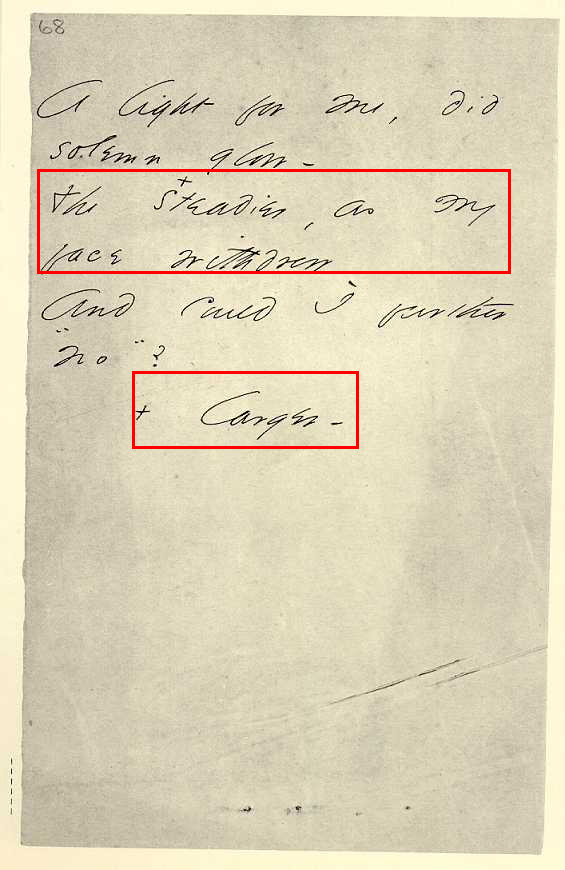 68
A light for me, did
solemn glow –
The + steadier, as my
face withdrew
And could I further
"no"?
+ larger –